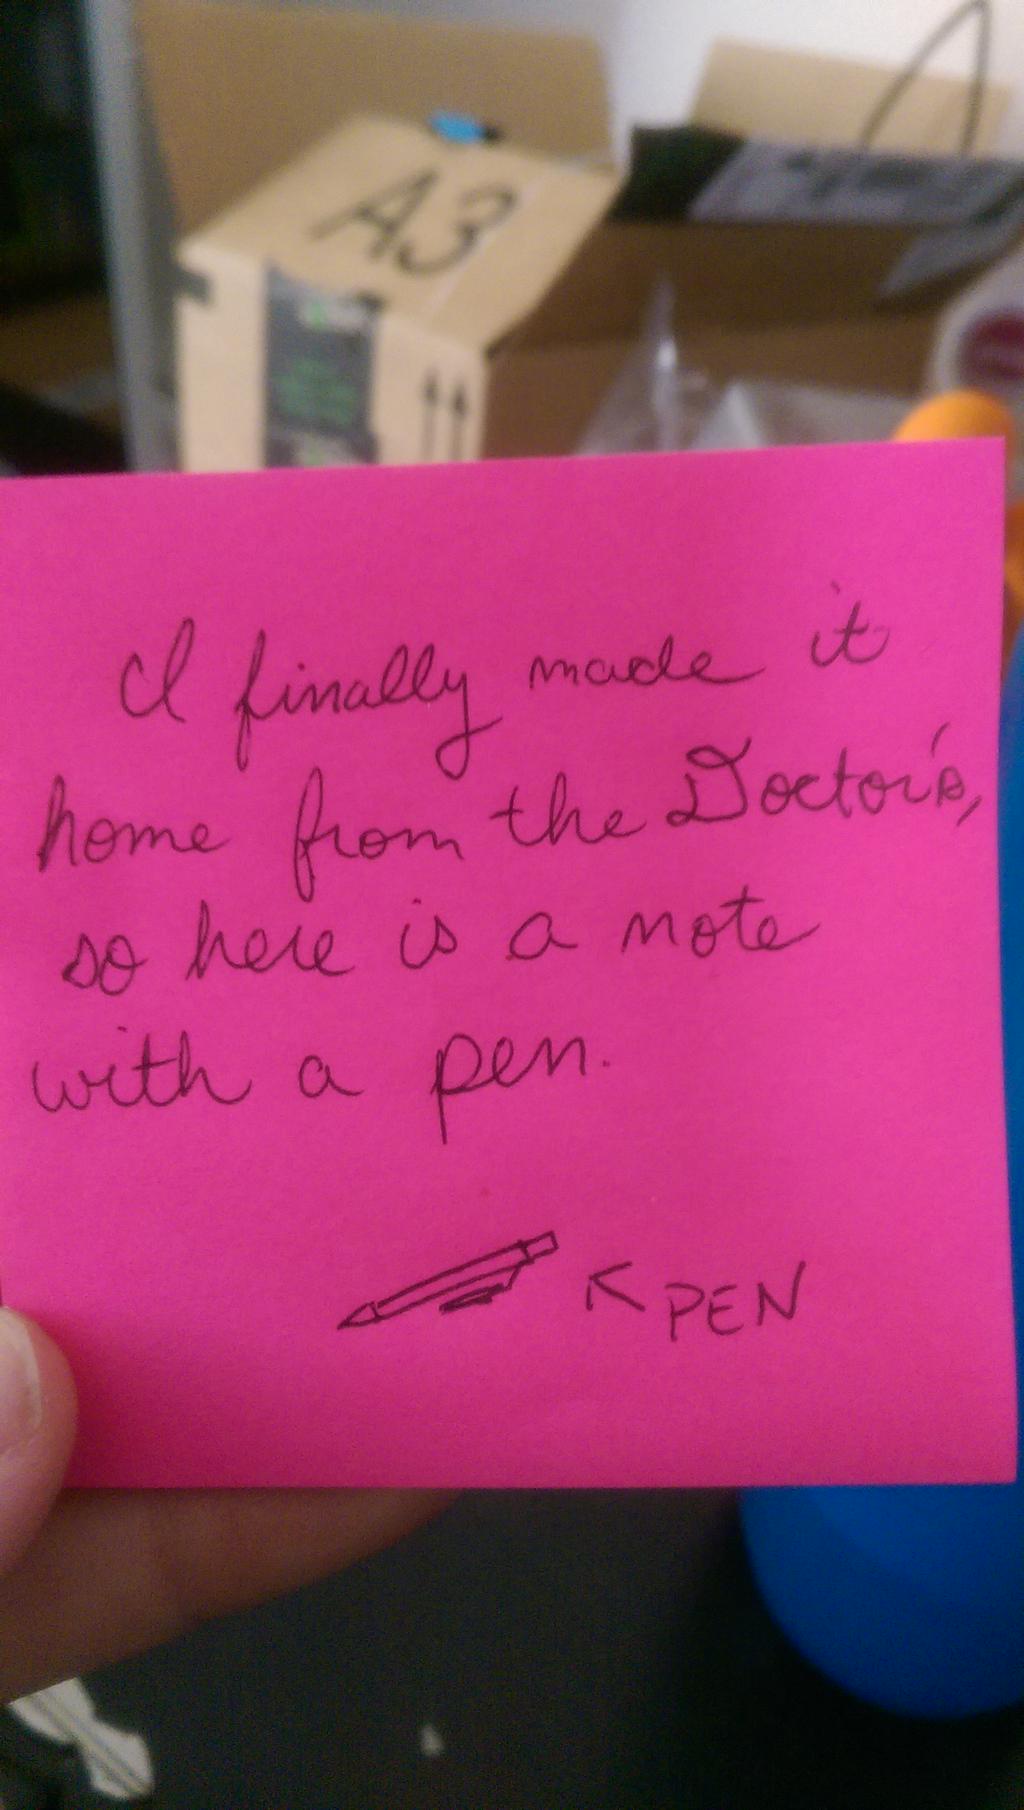 A3
I finally made it
home from the Doctor's,
so here is a note
with a pen.
PEN